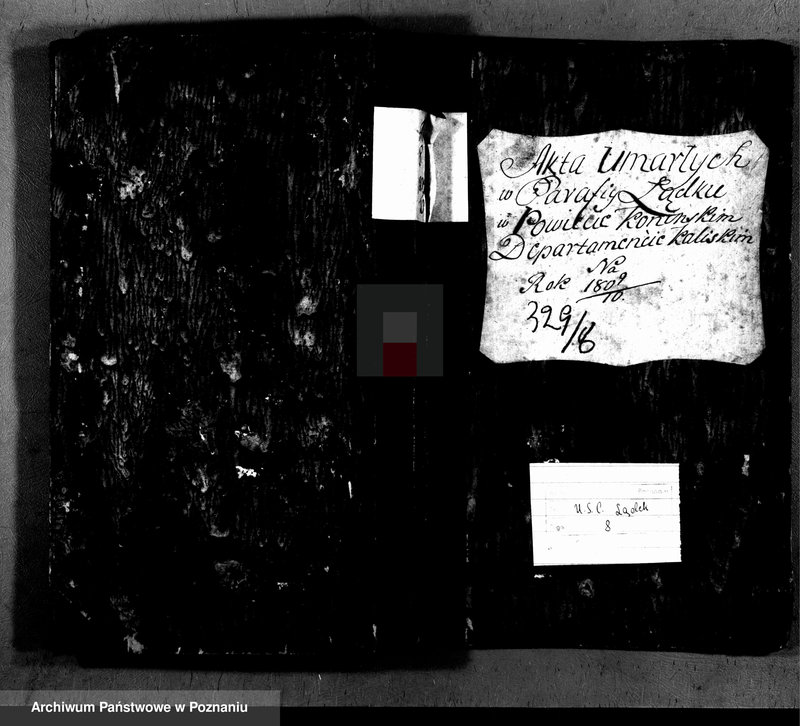 Akta Umarłych
w Parafiy Lądku
w Powiecie Koninskim
Departamencie Kaliskim
Na
Rok 1809/10.
329/8
U.S.C. Lądek
8
Archiwum Państwowe w Poznaniu